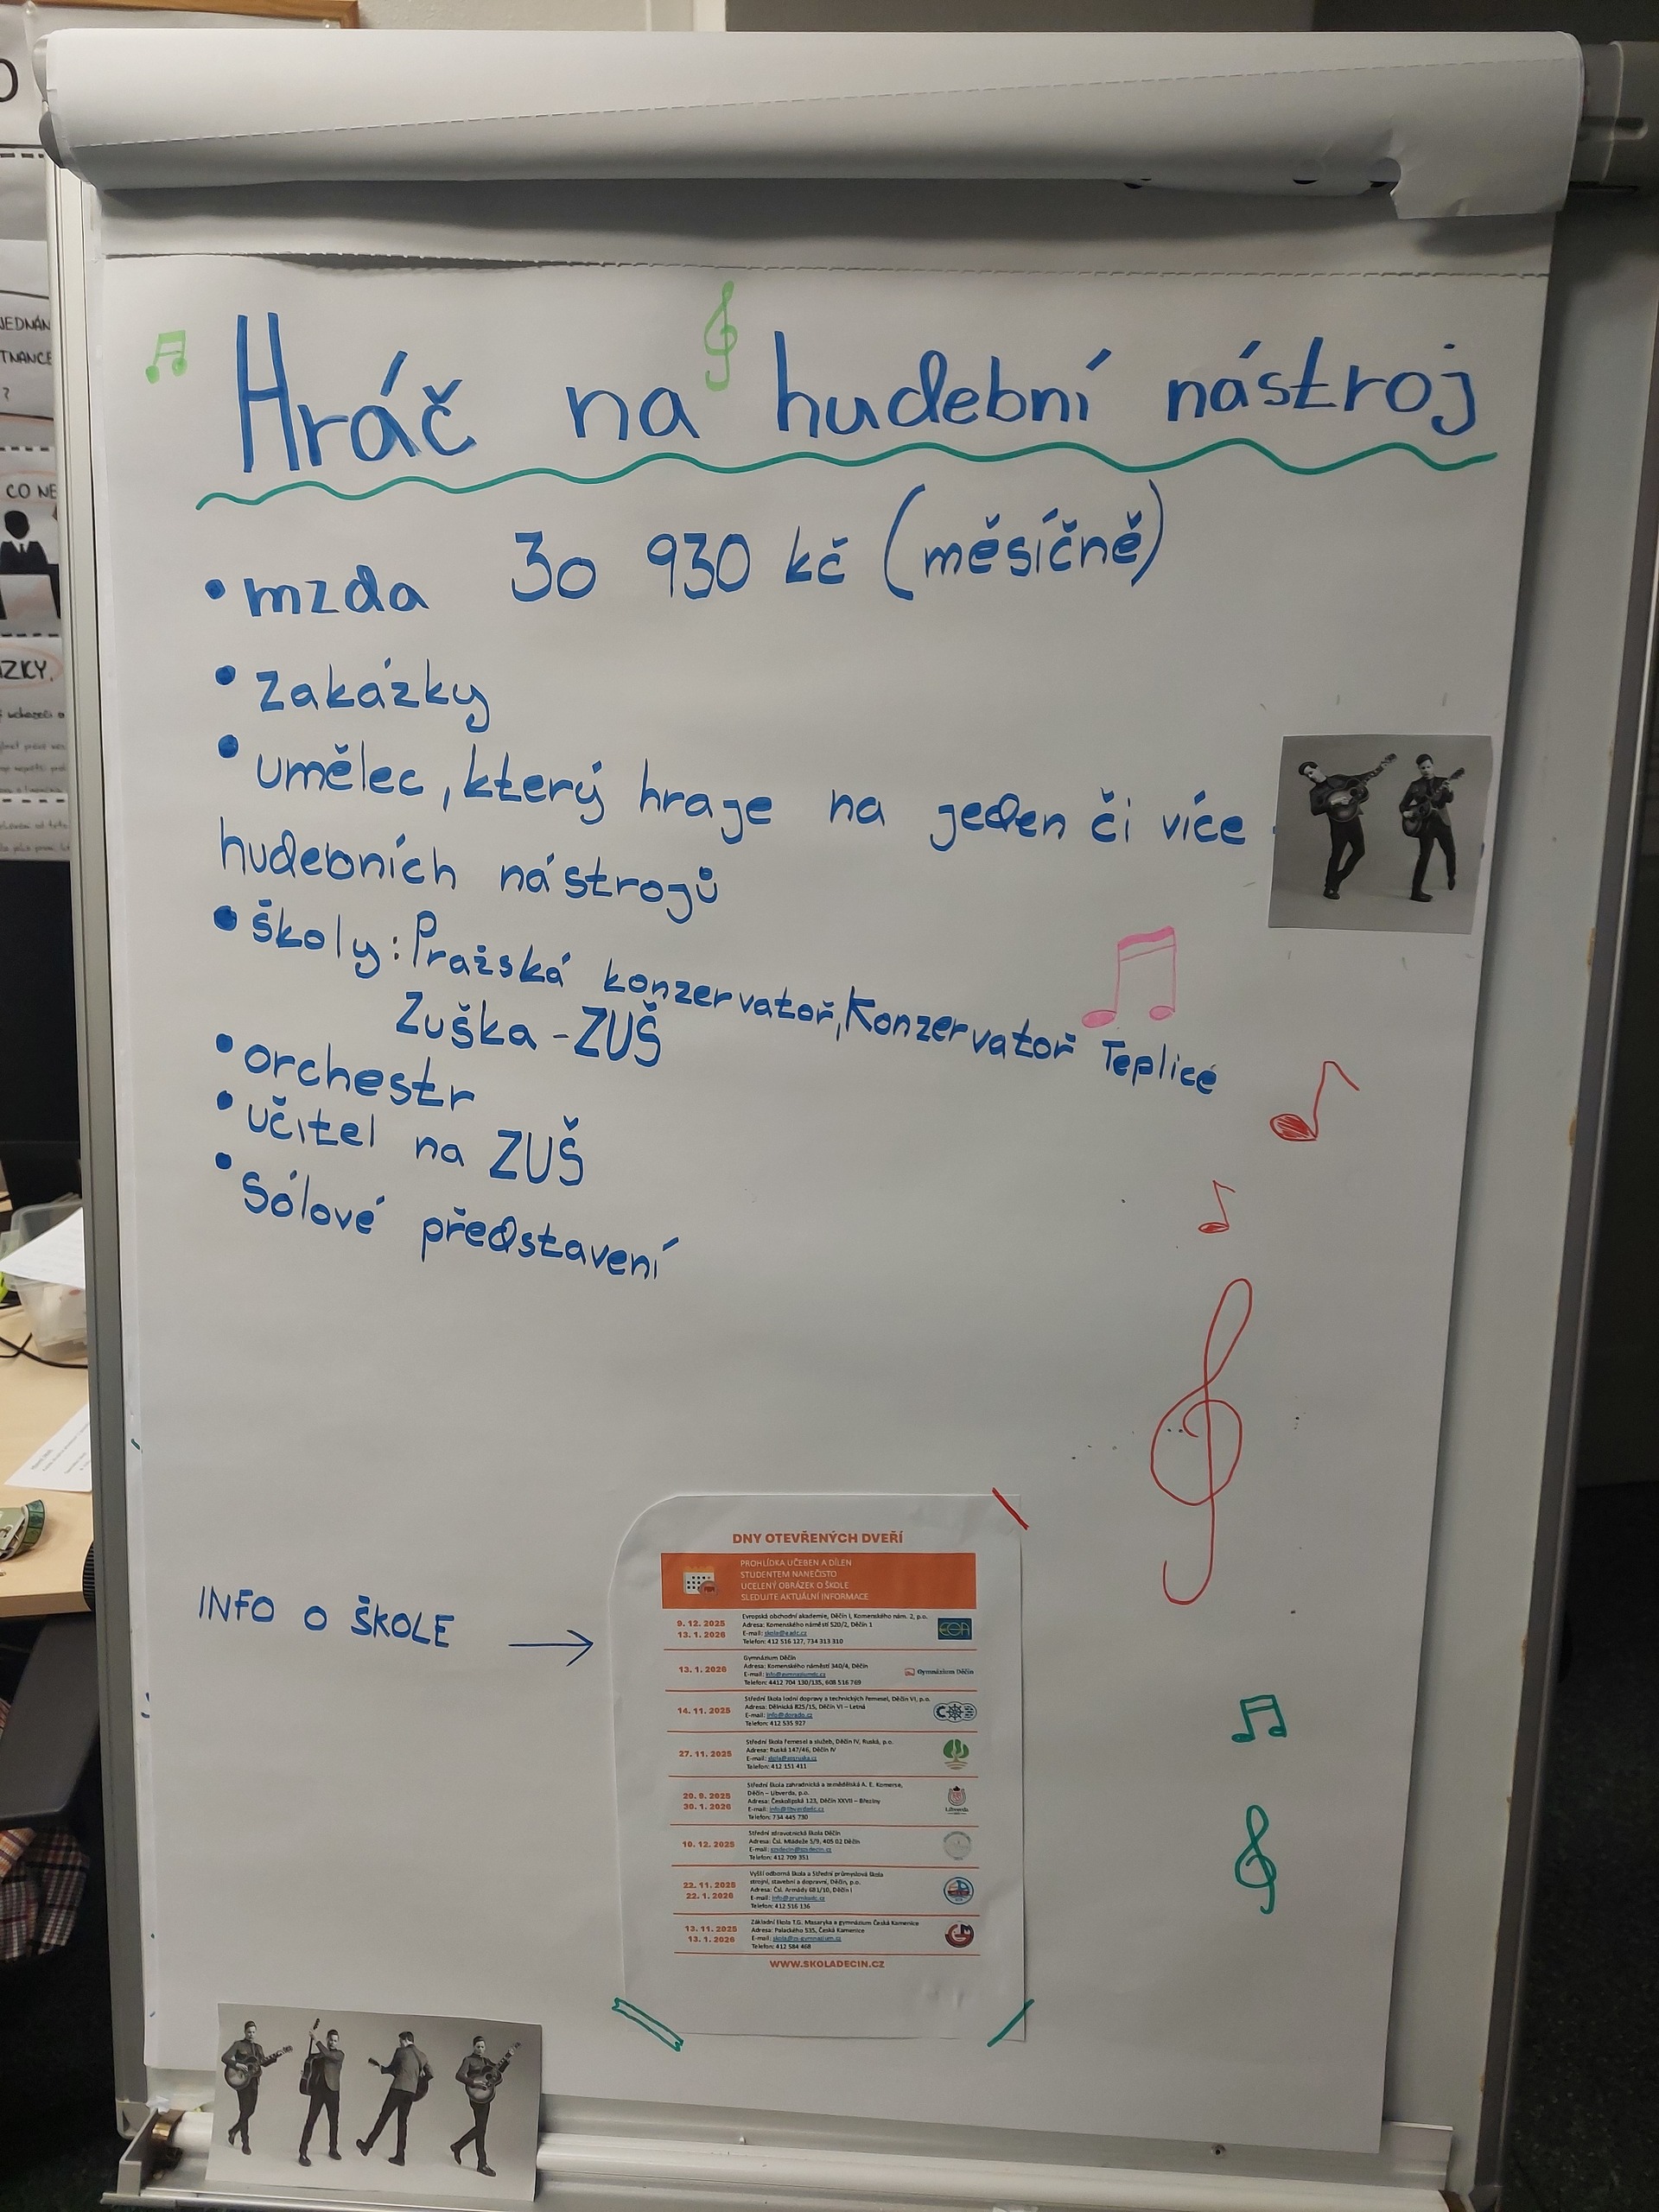 JEDNÁN
TNANCE
?
CO NE
ZKY.
Hráč na hudební nástroj
• mzda 30 930 kč (měsíčně)
• zakázky
• umělec, který hraje na jeden či více
hudebních nástrojů
• školy: Pražská konzervatoř, Konzervatoř Teplicé
Zuška - ZUŠ
• orchestr
• učitel na ZUŠ
• Sólové představení
INFO O ŠKOLE →
DNY OTEVŘENÝCH DVEŘÍ
PROHLÍDKA UČEBEN A DÍLEN
STUDENTEM NANEČISTO
UCELENÝ OBRÁZEK O ŠKOLE
SLEDUJTE AKTUÁLNÍ INFORMACE
9. 12. 2025
13. 1. 2026
Evropská obchodní akademie, Děčín I, Komenského nám. 2, p.o.
Adresa: Komenského náměstí 520/2, Děčín 1
E-mail: skola@eadc.cz
Telefon: 412 516 127, 734 313 310
EOA
13. 1. 2026
Gymnázium Děčín
Adresa: Komenského náměstí 340/4, Děčín
E-mail: info@gymnaziumdc.cz
Telefon: 4412 704 130/135, 608 516 769
Gymnázium Děčín
14. 11. 2025
Střední škola lodní dopravy a technických řemesel, Děčín VI, p.o.
Adresa: Dělnická 825/15, Děčín VI – Letná
E-mail: info@dorado.cz
Telefon: 412 535 927
27. 11. 2025
Střední škola řemesel a služeb, Děčín IV, Ruská, p.o.
Adresa: Ruská 147/46, Děčín IV
E-mail:
Telefon: 412 151 411
20. 9. 2025
30. 1. 2026
Střední škola zahradnická a zemědělská A. E. Komerse,
Děčín – Libverda, p.o.
Adresa: Českolipská 123, Děčín XXVII – Březiny
E-mail:
Telefon: 734 445 730
Libverda
10. 12. 2025
Střední zdravotnická škola Děčín
Adresa: Čsl. Mládeže 5/9, 405 02 Děčín
E-mail: szsdecin@szsdecin.cz
Telefon: 412 709 351
22. 11. 2025
22. 1. 2026
Vyšší odborná škola a Střední průmyslová škola
strojní, stavební a dopravní, Děčín, p.o.
Adresa: Čsl. Armády 681/10, Děčín I
E-mail: info@prumkadc.cz
Telefon: 412 516 136
13. 11. 2025
13. 1. 2026
Základní škola T.G. Masaryka a gymnázium Česká Kamenice
Adresa: Palackého 535, Česká Kamenice
E-mail: skola@zs-gymnazium.cz
Telefon: 412 584 468
WWW.SKOLADECIN.CZ